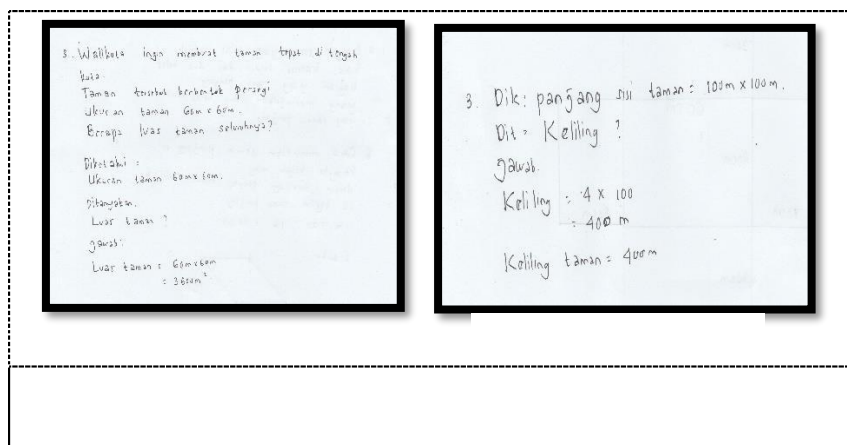 3. Walikota ingin membuat taman tepat di tengah
kota.
Taman tersebut berbentuk persegi
Ukuran taman 60m x 60m.
Berapa luas taman seluruhnya?
Diketahui :
Ukuran taman 60m x 60m.
Ditanyakan.
Luas taman ?
Jawab:
Luas taman = 60m x 60m
= 3600m²
3. Dik: panjang sisi taman = 100m x 100m.
Dit = Keliling ?
Jawab.
Keliling = 4 x 100
= 400 m
Keliling taman = 400m